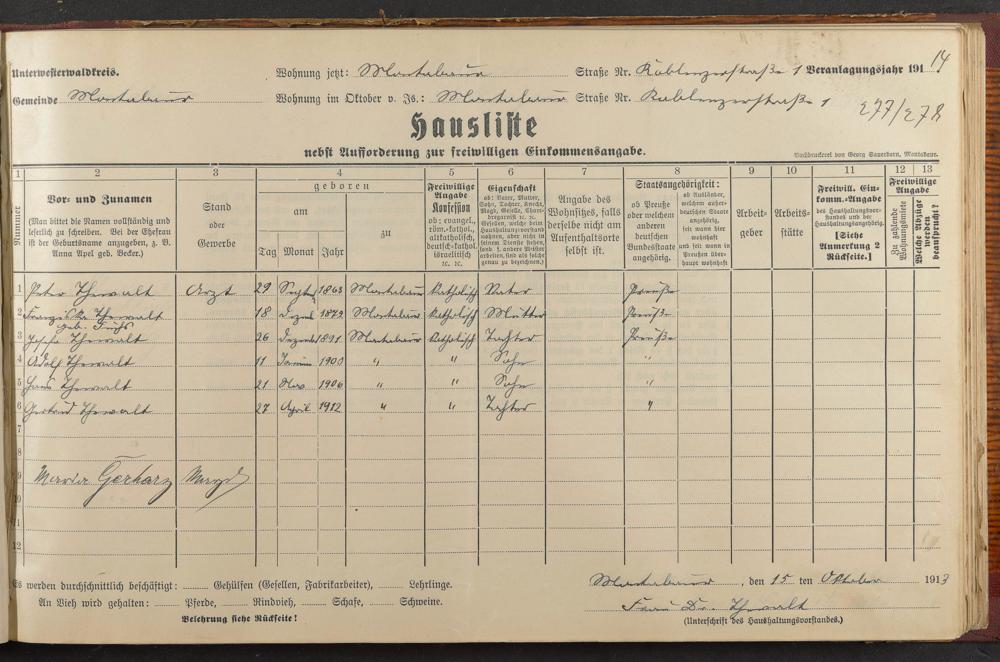 Unterwesterwaldkreis. Wohnung jetzt: Montabaur Straße Nr. Koblenzerstraße 1 Veranlagungsjahr 191 14
Gemeinde Montabaur Wohnung im Oktober v. Js.: Montabaur Straße Nr. Koblenzerstraße 1 277/278
Hausliste
nebst Aufforderung zur freiwilligen Einkommensangabe.
Buchdruckerei von Georg Sauerborn, Montabaur.
1 2 3 4 5 6 7 8 9 10 11 12 13
Nummer
Vor- und Zunamen
(Man bittet die Namen vollständig und
leserlich zu schreiben. Bei der Ehefrau
ist der Geburtsname anzugeben, z. B.
Anna Apel geb. Becker.)
Stand
oder
Gewerbe
geboren
am zu
Tag Monat Jahr
Freiwillige
Angabe
Konfession
ob: evangel.,
röm.-kathol.,
altkatholisch,
deutsch-kathol.
israelitisch
ec. ec.
Eigenschaft
ob: Vater, Mutter,
Sohn, Tochter, Knecht,
Magd, Geselle,
Angabe des
Wohnsitzes, falls
derselbe nicht am
Aufenthaltsorte
selbst ist.
Staatsangehörigkeit:
ob Preuße
oder welchem
anderen
deutschen
Bundesstaate
angehörig.
ob Ausländer,
welchem außer-
deutschen Staate
angehörig,
seit wann hier
wohnhaft
und seit wann in
Preußen über-
haupt wohnhaft
Arbeit-
geber
Arbeits-
stätte
Freiwill. Ein-
komm.-Angabe
des Haushaltungsvor-
standes und der
Haushaltungsangehörig.
[Siehe
Anmerkung 2
Rückseite.]
Freiwillige
Angabe
Zu zahlende
Wohnungsmiete
Welche Abzüge
werden
beansprucht?
1 Peter Thewalt Arzt 29 Sept. 1863 Montabaur katholisch Vater Preuße
2 Franziska Thewalt 18 1872 Montabaur katholisch Mutter Preuße
geb. Fuchs
3 Thewalt 26 1891 Montabaur katholisch Tochter Preuße
4 Adolf Thewalt 11 Januar 1900 " " Sohn "
5 Hans Thewalt 21 1906 " " Sohn "
6 Gertrud Thewalt 27 April 1912 " " Tochter "
7
8
9 Maria Gerharz Magd
10
11
12
Es werden durchschnittlich beschäftigt: Gehülfen (Gesellen, Fabrikarbeiter), Lehrlinge.
An Vieh wird gehalten: Pferde, Rindvieh, Schafe, Schweine.
Belehrung siehe Rückseite!
Montabaur, den 15 ten Oktober 1913
Frau Dr. Thewalt
(Unterschrift des Haushaltungsvorstandes.)